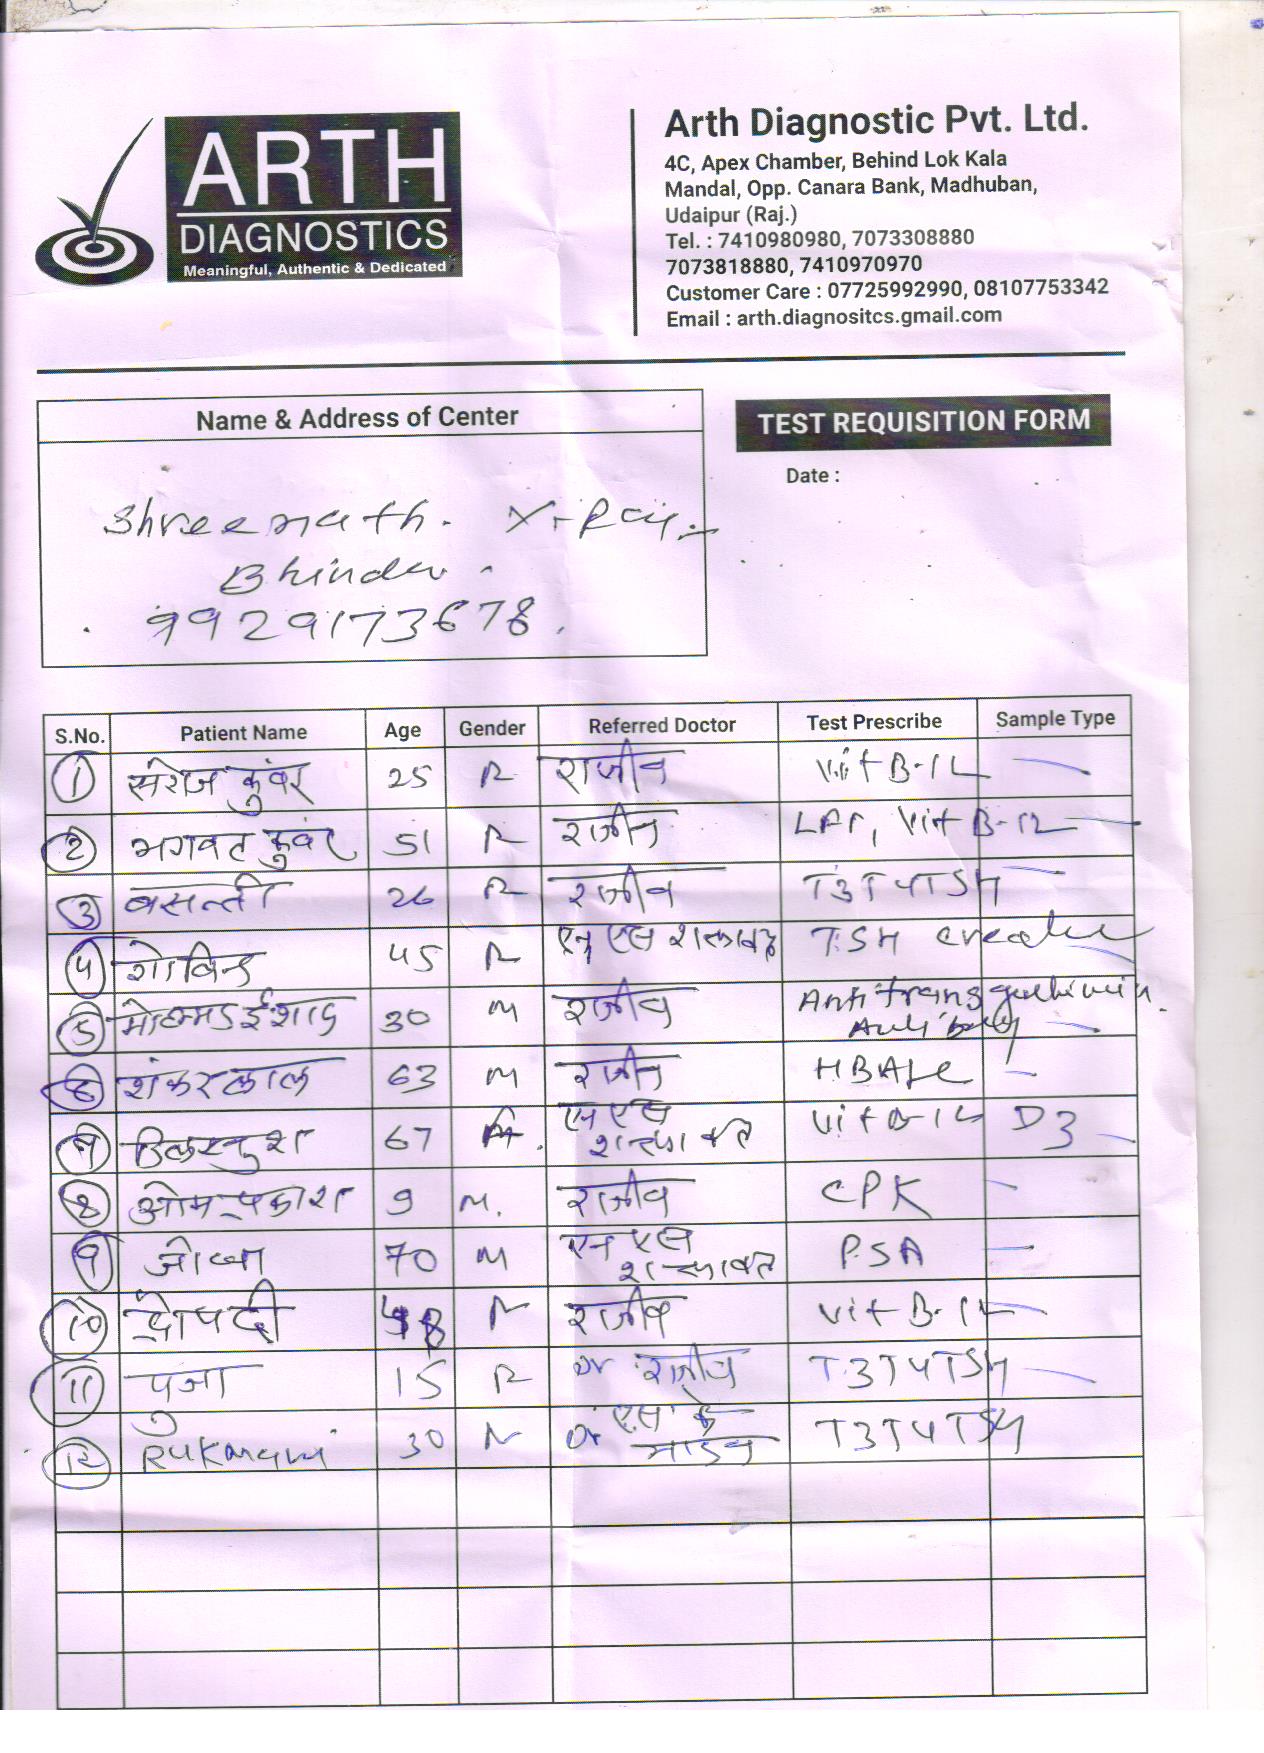 ARTH
DIAGNOSTICS
Meaningful, Authentic & Dedicated
Arth Diagnostic Pvt. Ltd.
4C, Apex Chamber, Behind Lok Kala
Mandal, Opp. Canara Bank, Madhuban,
Udaipur (Raj.)
Tel. : 7410980980, 7073308880
7073818880, 7410970970
Customer Care : 07725992990, 08107753342
Email : arth.diagnositcs.gmail.com
Name & Address of Center
TEST REQUISITION FORM
Date :
Shreenath. X-Ray
Bhinder.
9929173678.
S.No. Patient Name Age Gender Referred Doctor Test Prescribe Sample Type
1 सरोज कुंवर 25 राजीव Vit B-12
2 भगवत कुंवर 51 राजीव LFT, Vit B-12
3 बसन्ती 26 राजीव T3T4TSH
4 गोविन्द 45 एन एस शक्तावत TSH
5 30 M राजीव Anti
6 शंकरलाल 63 M राजीव HBA1c
7 67 एन एस
शक्तावत Vit B-12 D3
8 ओमप्रकाश 9 M. राजीव CPK
9 70 M एन एस
शक्तावत PSA
10 द्रोपदी 48 राजीव Vit B-12
11 पुजा 15 Dr राजीव T3T4TSH
12 Rukmani 30 Dr एस के T3T4TSH